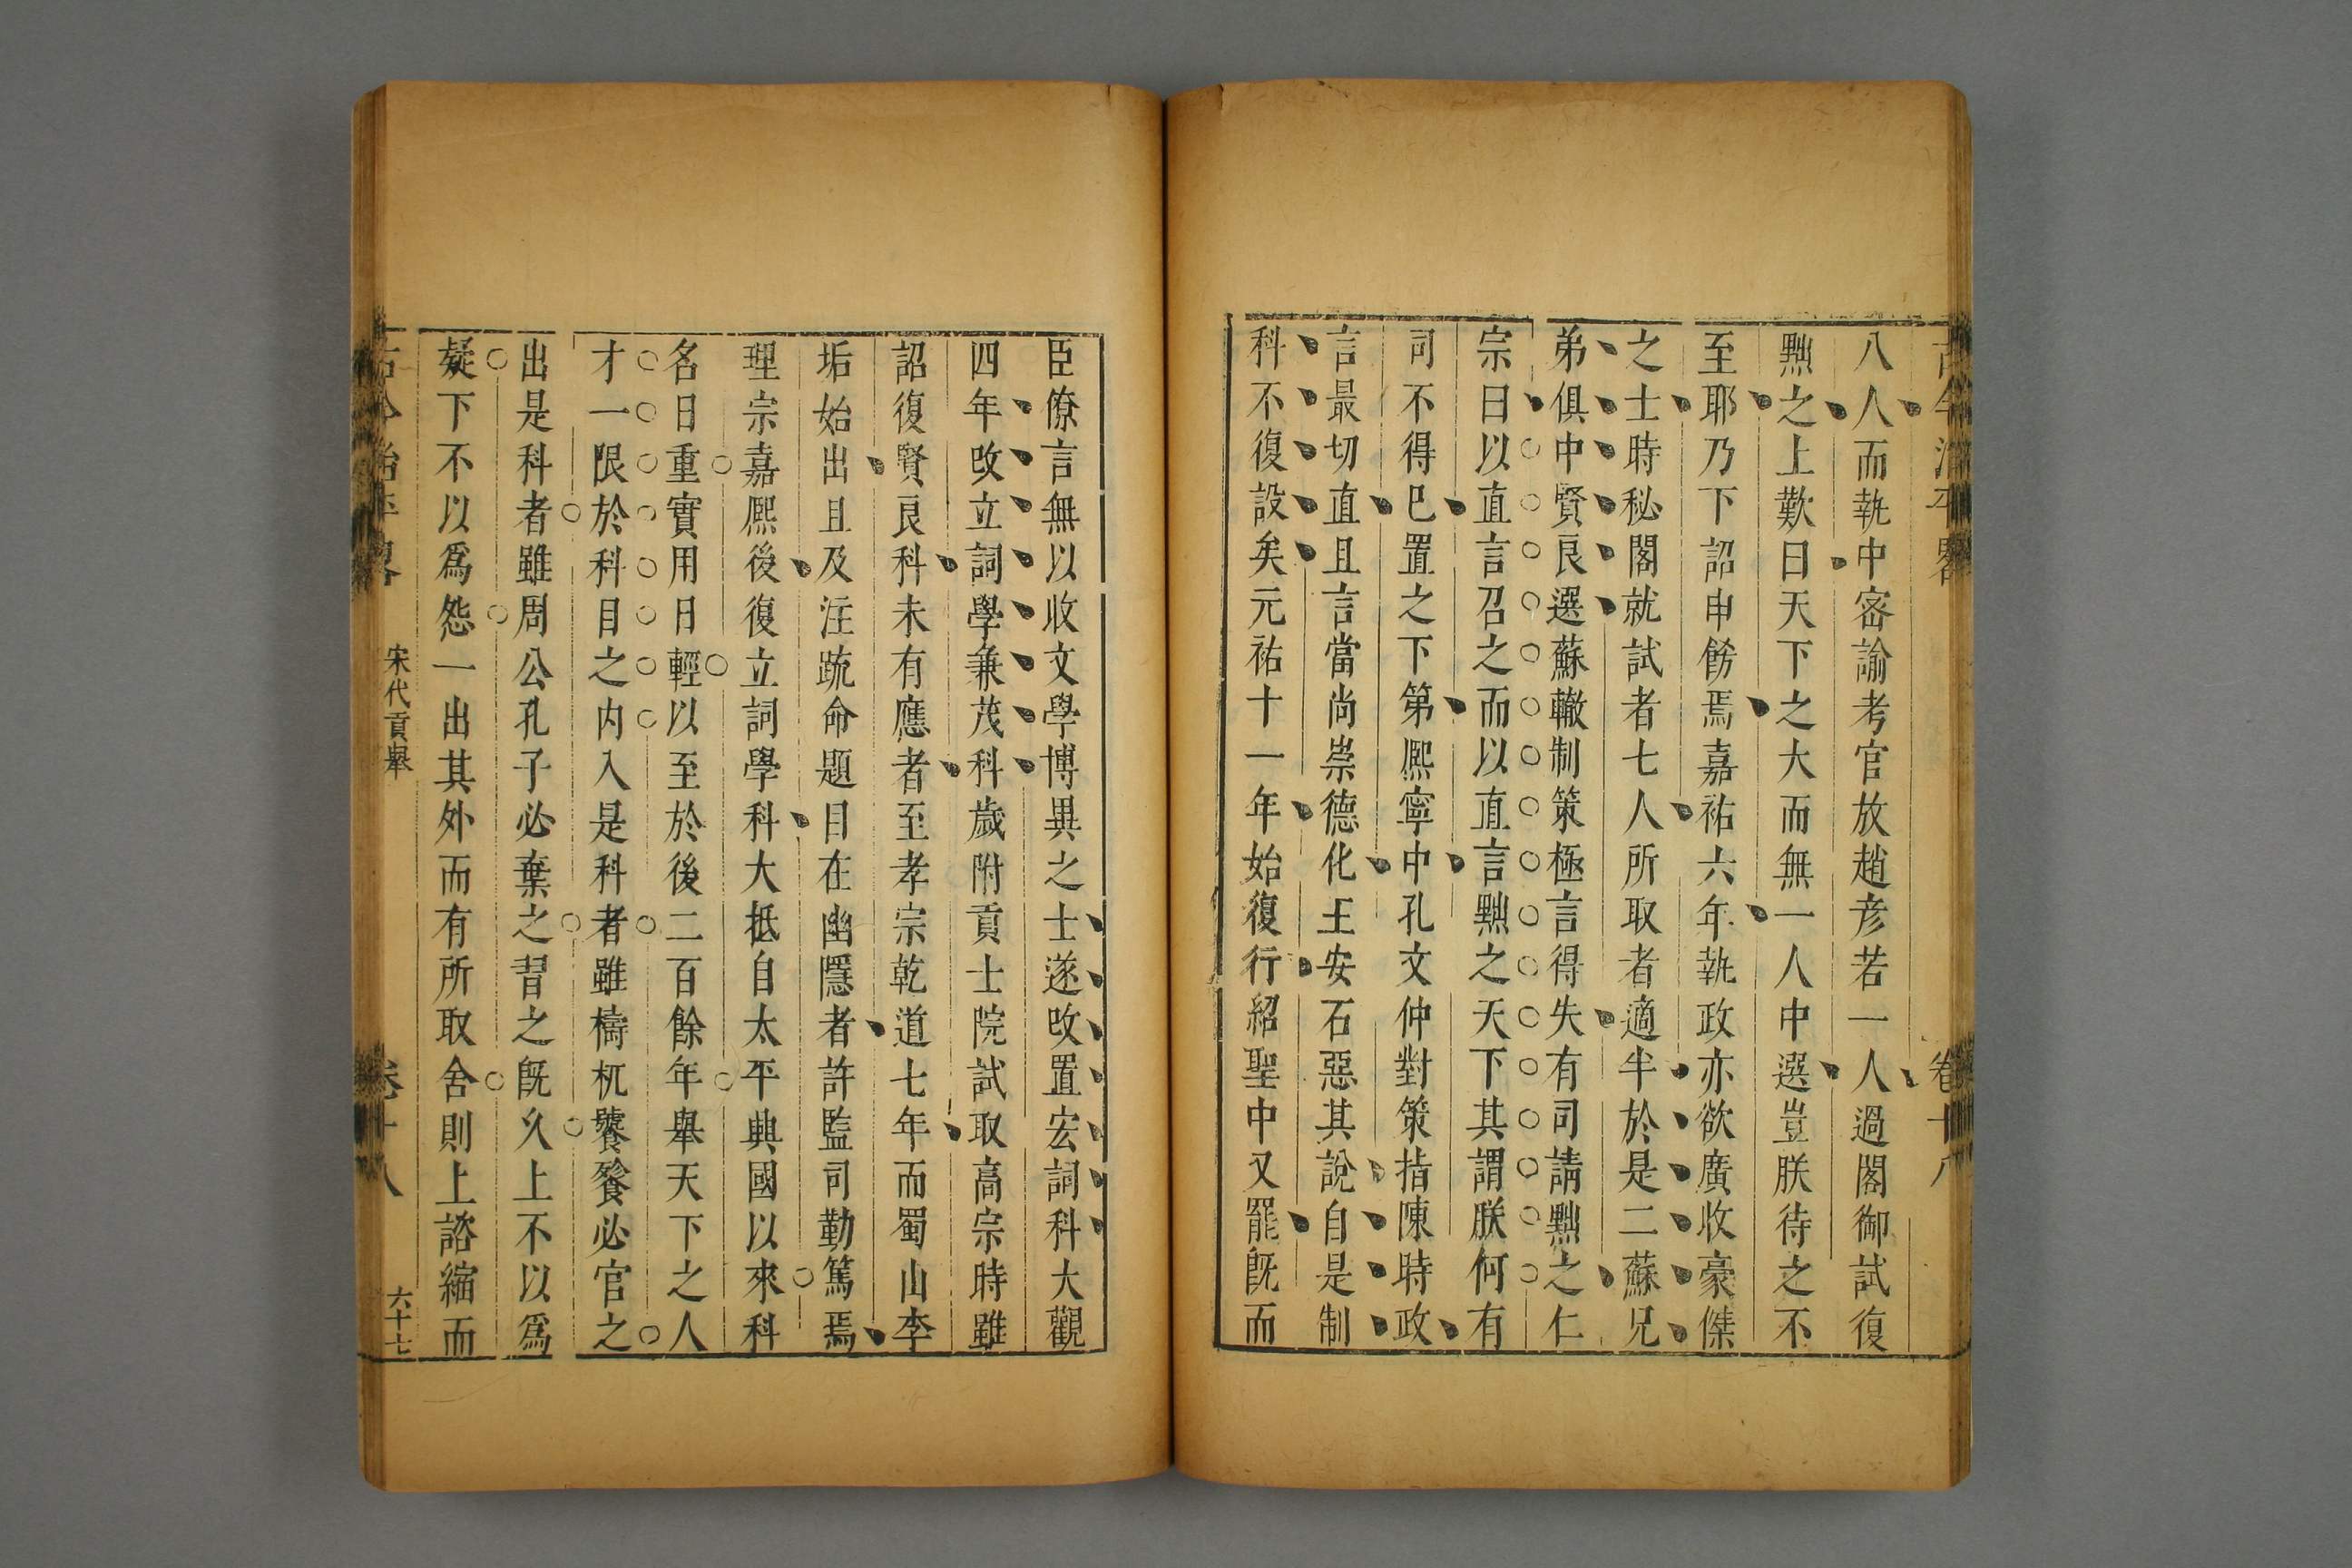 古今治平畧 卷十八
八人而執中密諭考官放趙彥若一人過閣御試復
黜之上歎曰天下之大而無一人中選豈朕待之不
至耶乃下詔申飭焉嘉祐六年執政亦欲廣收豪傑
之士時秘閣就試者七人所取者適半於是二蘇兄
弟俱中賢良選蘇轍制策極言得失有司請黜之仁
宗曰以直言召之而以直言黜之天下其謂朕何有
司不得已置之下第熙寧中孔文仲對策指陳時政
言最切直且言當尚崇德化王安石惡其說自是制
科不復設矣元祐十一年始復行紹聖中又罷旣而
臣僚言無以收文學博異之士遂改置宏詞科大觀
四年改立詞學兼茂科歲附貢士院試取高宗時雖
詔復賢良科未有應者至孝宗乾道七年而蜀山李
垢始出且及注疏命題目在幽隱者許監司勤篤焉
理宗嘉熙後復立詞學科大抵自太平興國以來科
名日重實用日輕以至於後二百餘年舉天下之人
才一限於科目之內入是科者雖檮杌饕餮必官之
出是科者雖周公孔子必棄之習之旣久上不以爲
疑下不以爲怨一出其外而有所取舍則上諮縮而
古今治平畧 宋代貢舉 卷十八 六十七